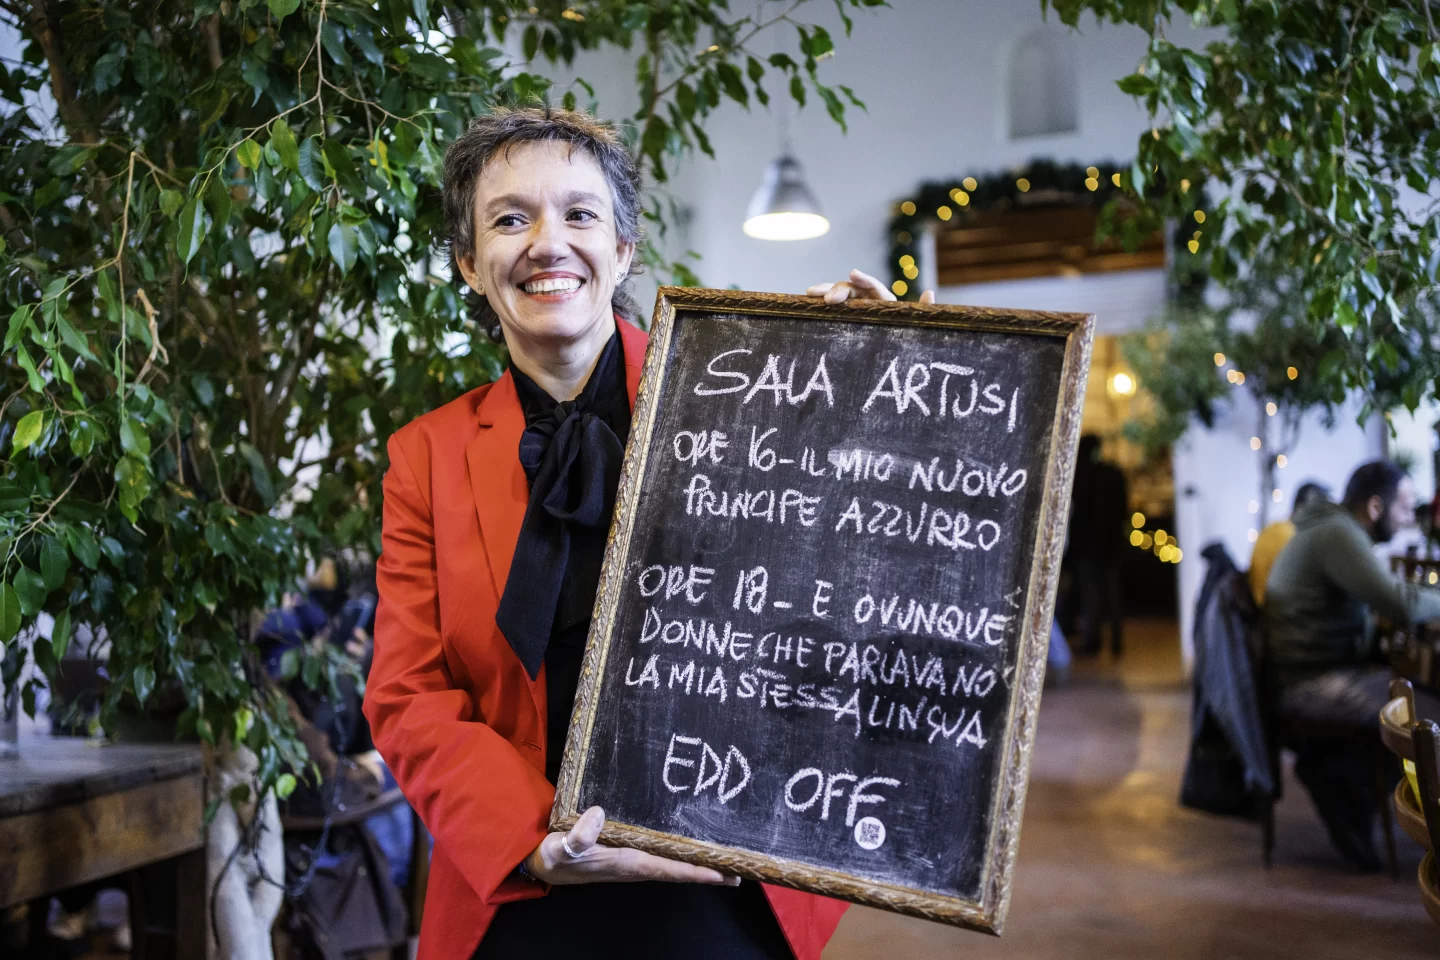 SALA ARTUSI
ORE 16-IL MIO NUOVO
PRINCIPE AZZURRO
ORE 18- E OVUNQUE
DONNE CHE PARLAVANO
LA MIA STESSA LINGUA
EDD OFF